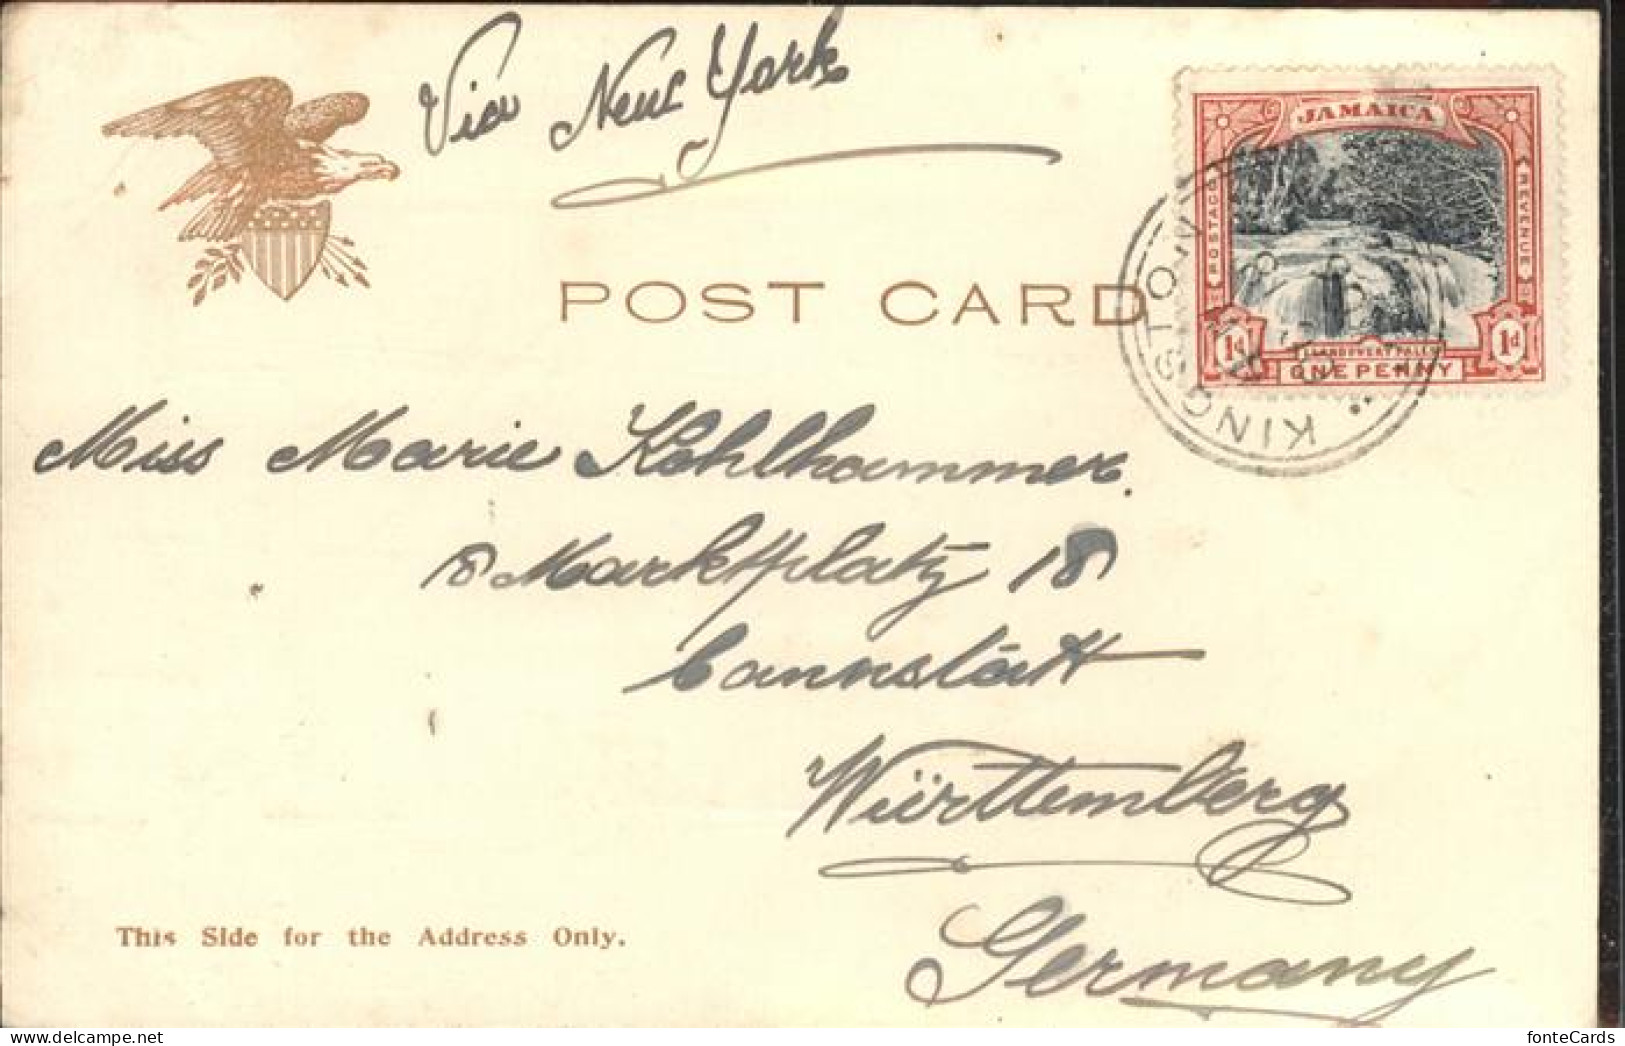 Via New York
JAMAICA
POSTAGE
REVENUE
1d
1d
LLANDOVERY FALLS
ONE PENNY
KINGSTON
POST CARD
Miss Marie Kohlhammer.
Marktplatz 18
Cannstatt
Württemberg
Germany
This Side for the Address Only.
fonteCards